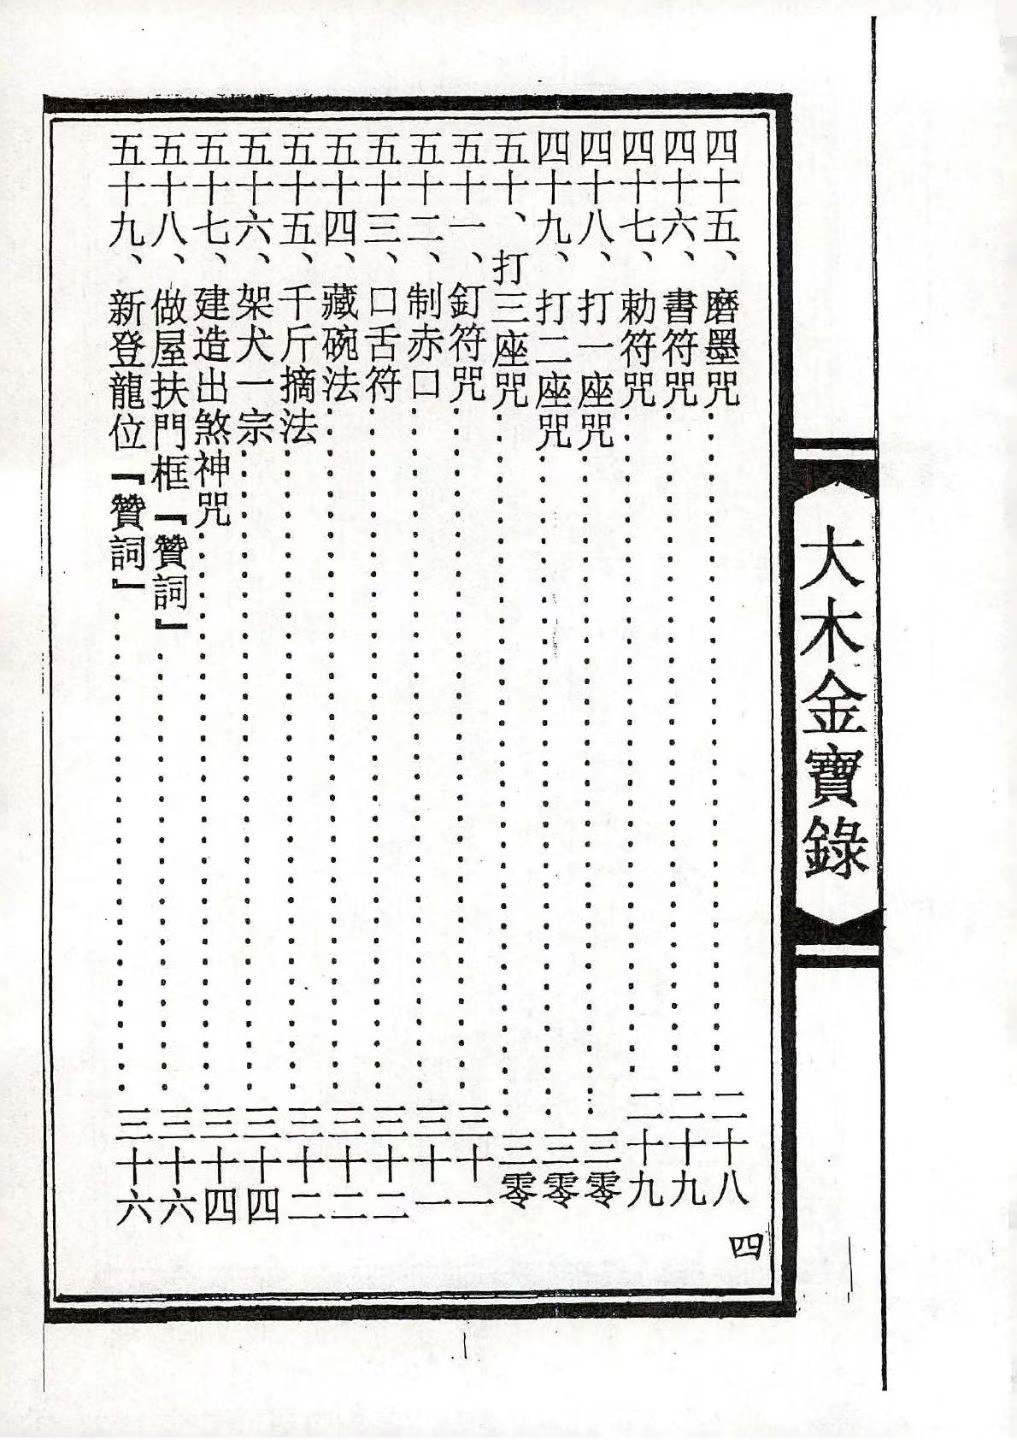 大木金寶錄
四十五、磨墨咒……二十八
四十六、書符咒……二十九
四十七、勅符咒……二十九
四十八、打一座咒……三零
四十九、打二座咒……三零
五十、打三座咒……三零
五十一、釘符咒……三十一
五十二、制赤口……三十一
五十三、口舌符……三十二
五十四、藏碗法……三十二
五十五、千斤摘法……三十二
五十六、架犬一宗……三十四
五十七、建造出煞神咒……三十四
五十八、做屋扶門框『贊詞』……三十六
五十九、新登龍位『贊詞』……三十六
四